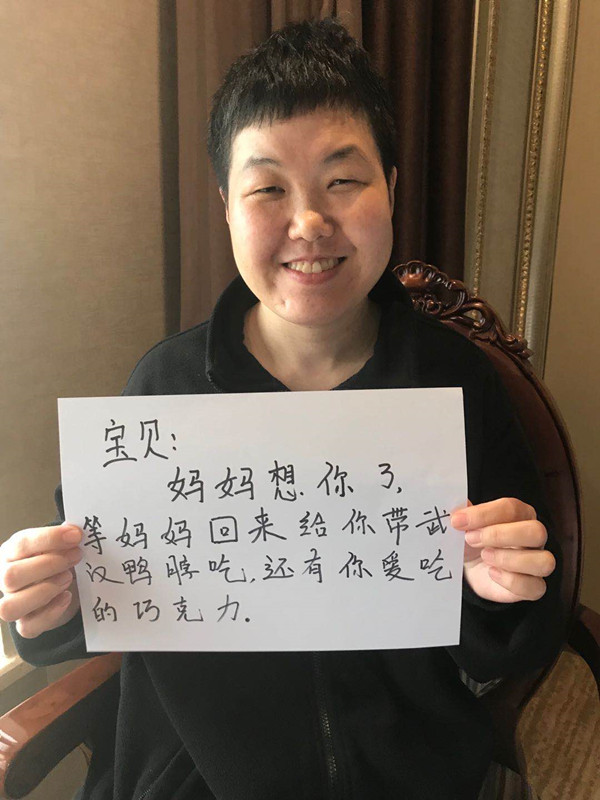 宝贝:
妈妈想你了,
等妈妈回来给你带武
汉鸭脖吃,还有你爱吃
的巧克力.